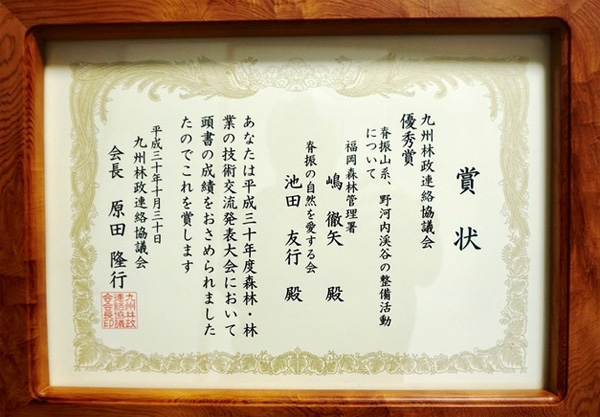 賞状
九州林政連絡協議会
優秀賞
脊振山系、野河内渓谷の整備活動
について
福岡森林管理署
嶋徹矢殿
脊振の自然を愛する会
池田友行殿
あなたは平成三十年度森林・林
業の技術交流発表大会において
頭書の成績をおさめられました
たのでこれを賞します
平成三十年十月三十日
九州林政連絡協議会
会長 原田隆行
九州林政
連絡協議
会会長印